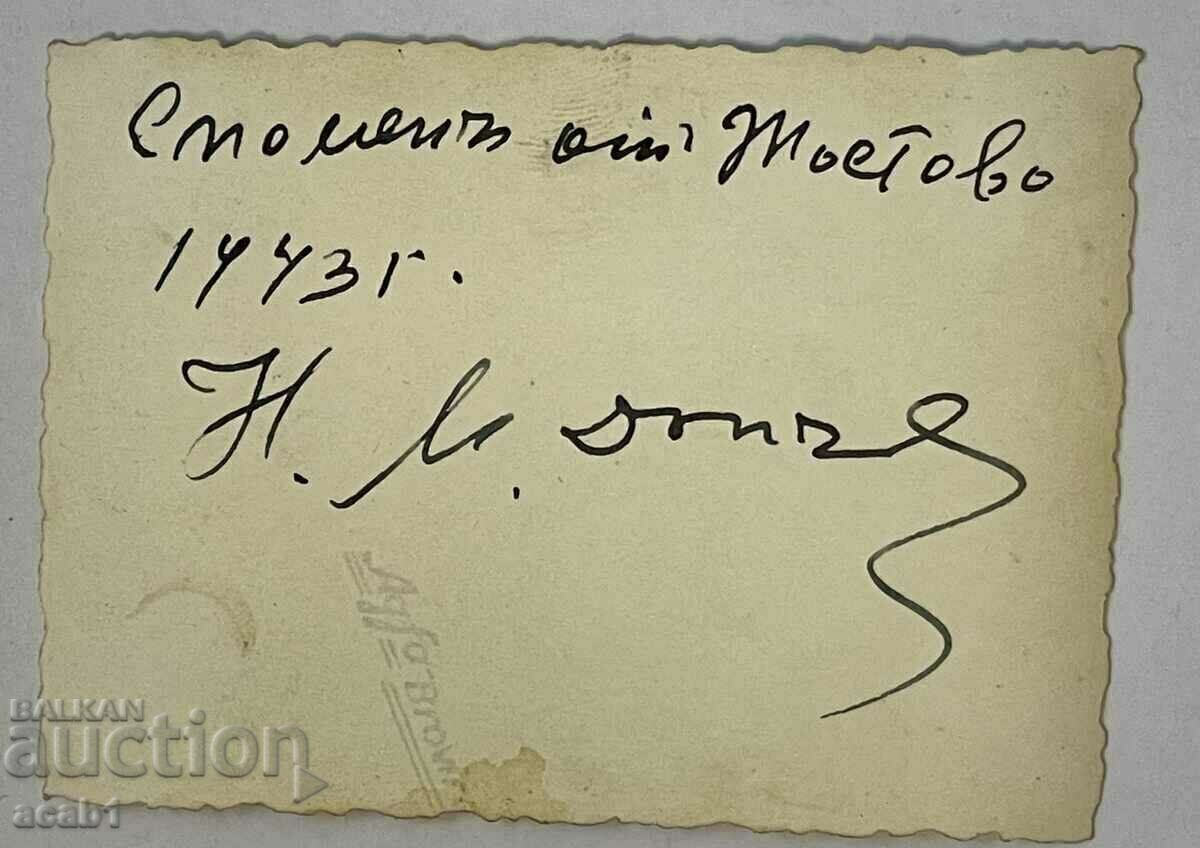 Споменъ отъ Мостово
1943 г.
Н. И. Дончев
Agfa Brovira
BALKAN
auction
acab1